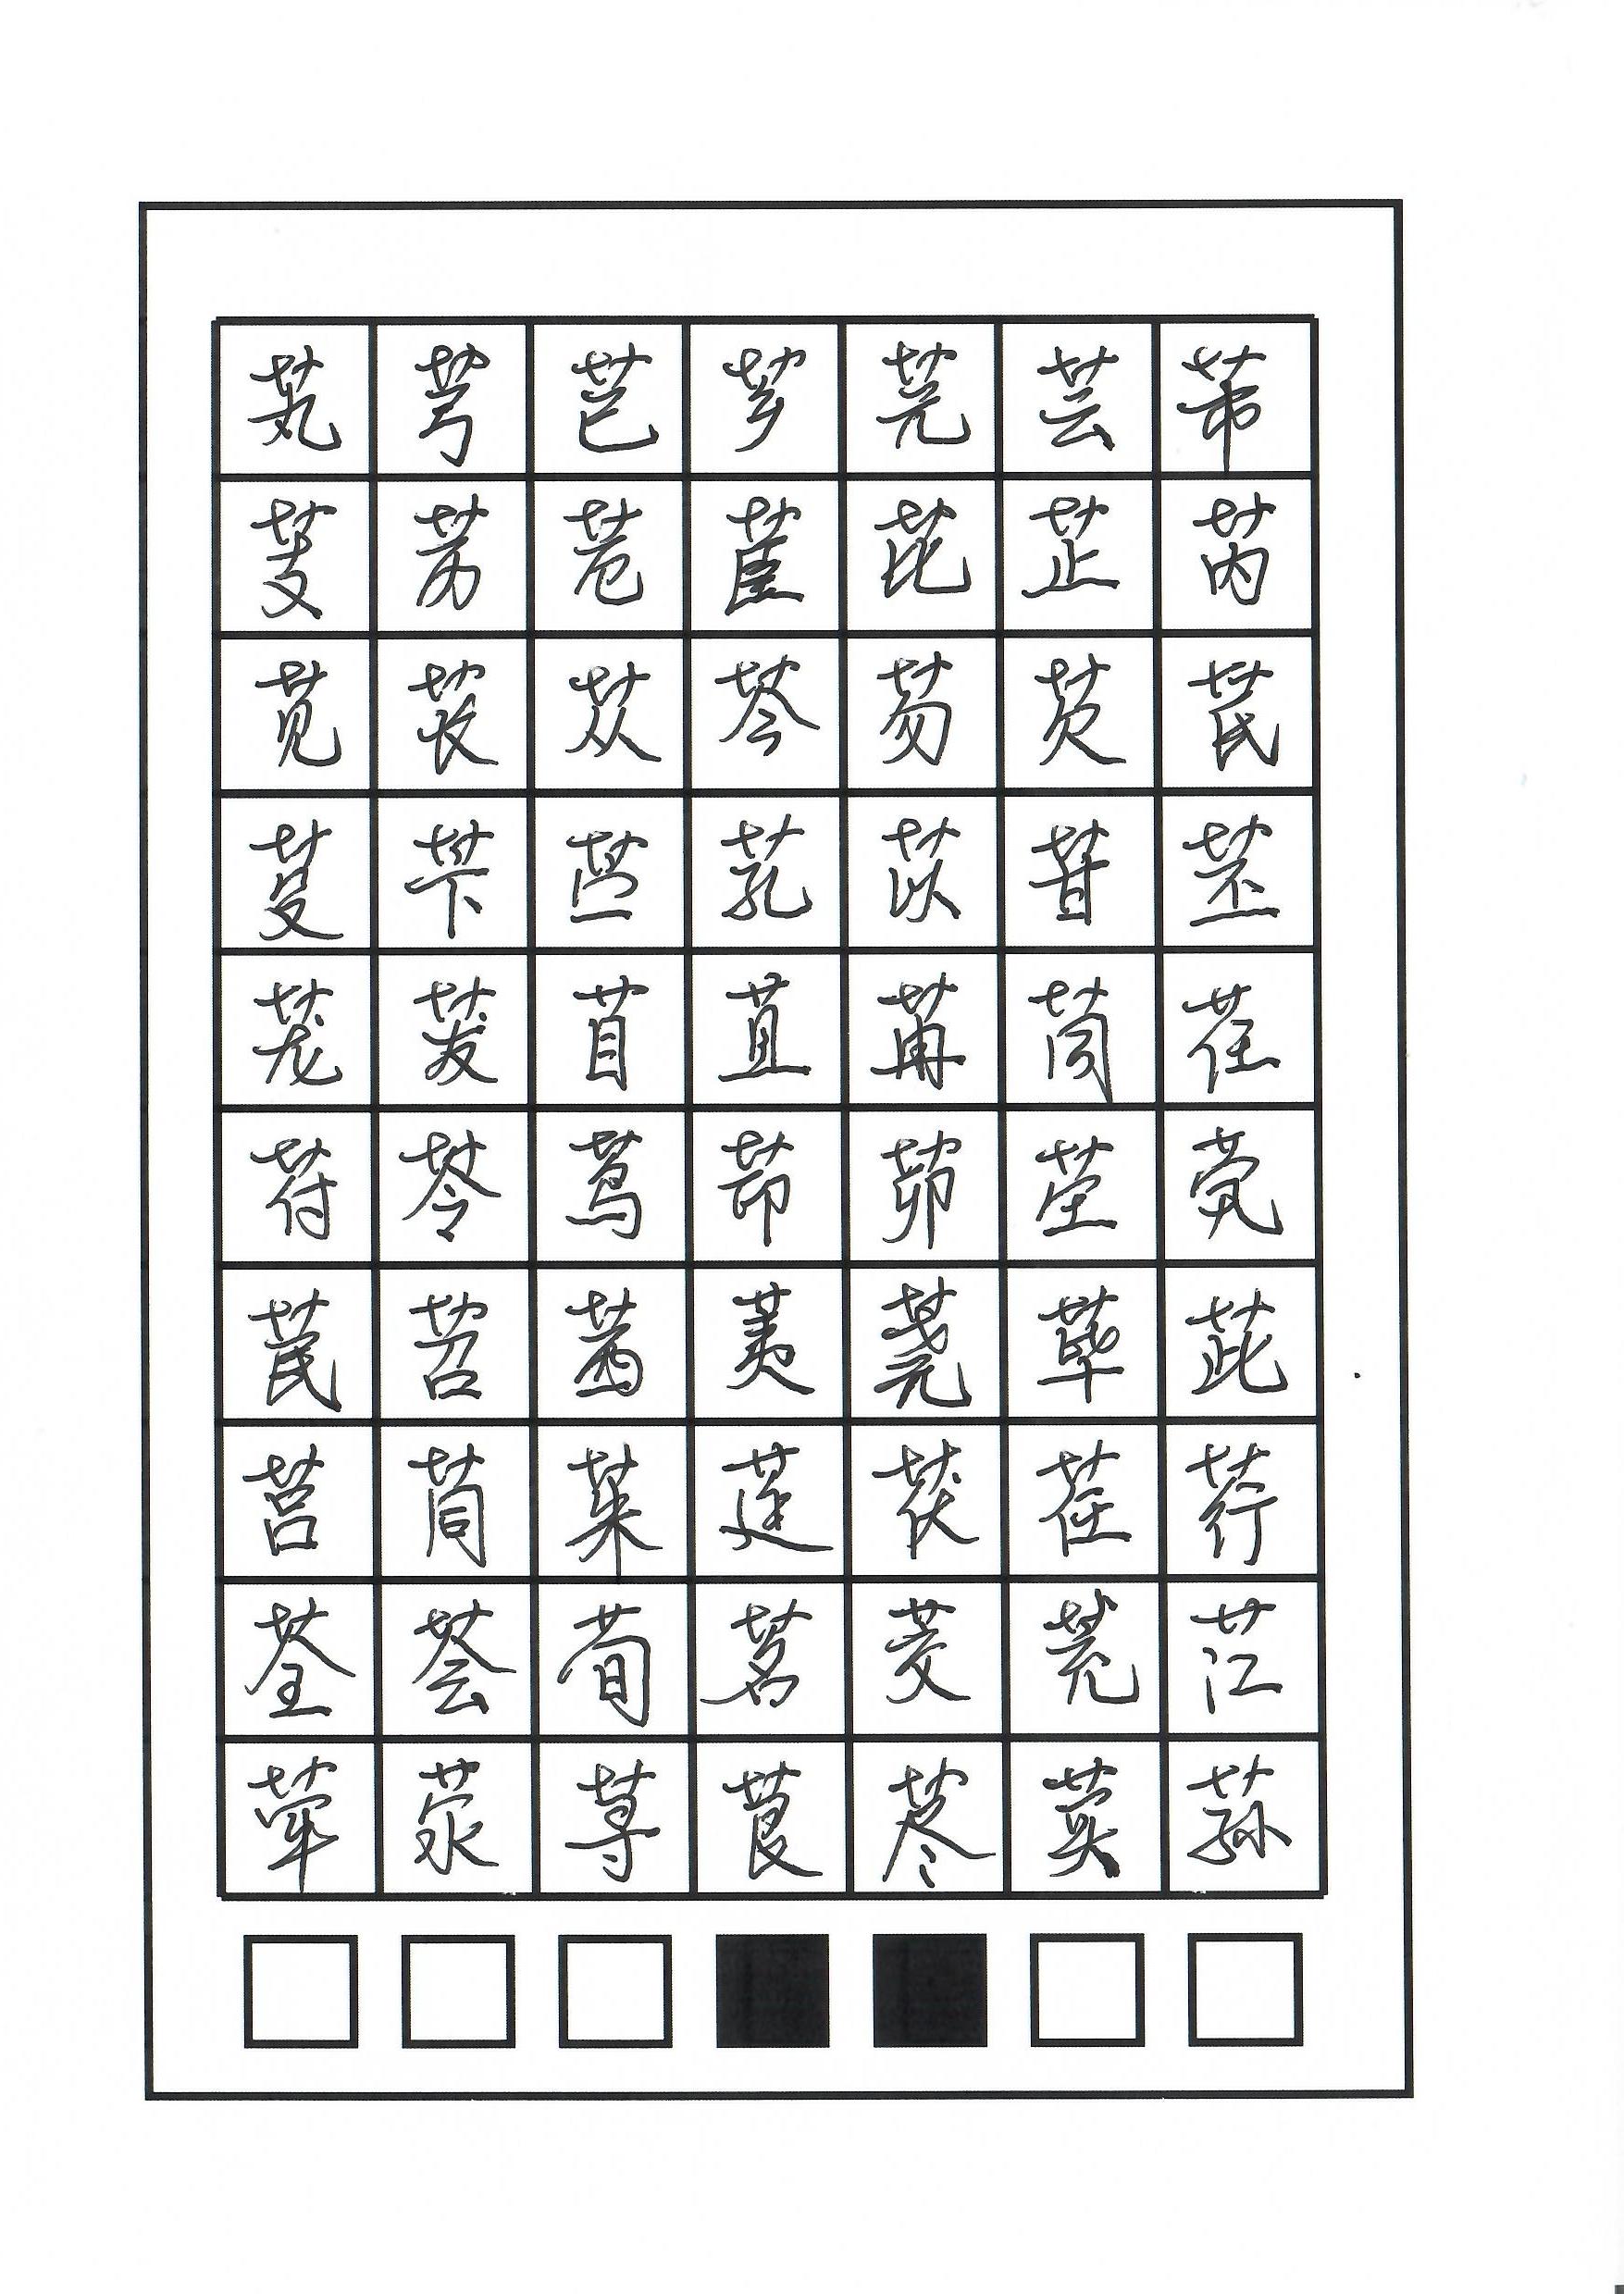 芄芎芑芗芫芸芾
芰苈苣苣芘芷芮
苋苌苁芩芴芡芪
芟苄苎芤苡茉苤
茏茇苜苴苒苘茌
苻苓茑茚茆茔茕
苠苕茜荑荛荜茈
莒茼茱莛茯茬荇
荃荟荀茗茭茺茳
荤荥荨茛荩荬荪